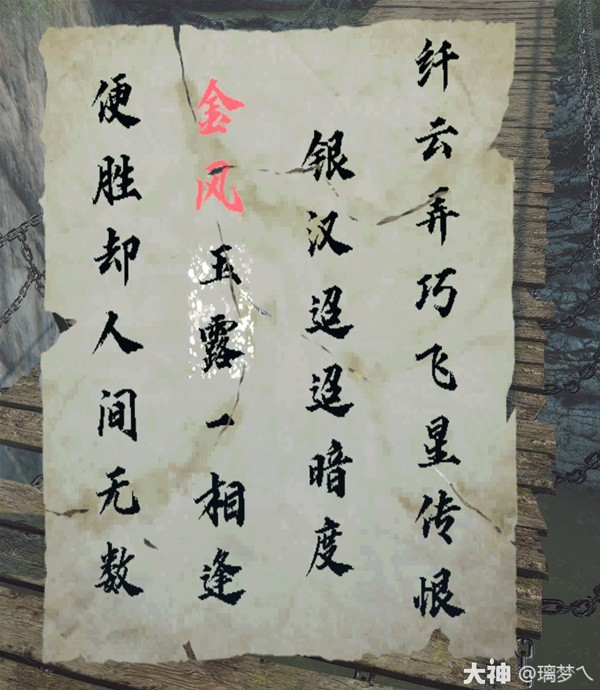 纤云弄巧飞星传恨
银汉迢迢暗度
金风玉露一相逢
便胜却人间无数
大神 @璃梦乀